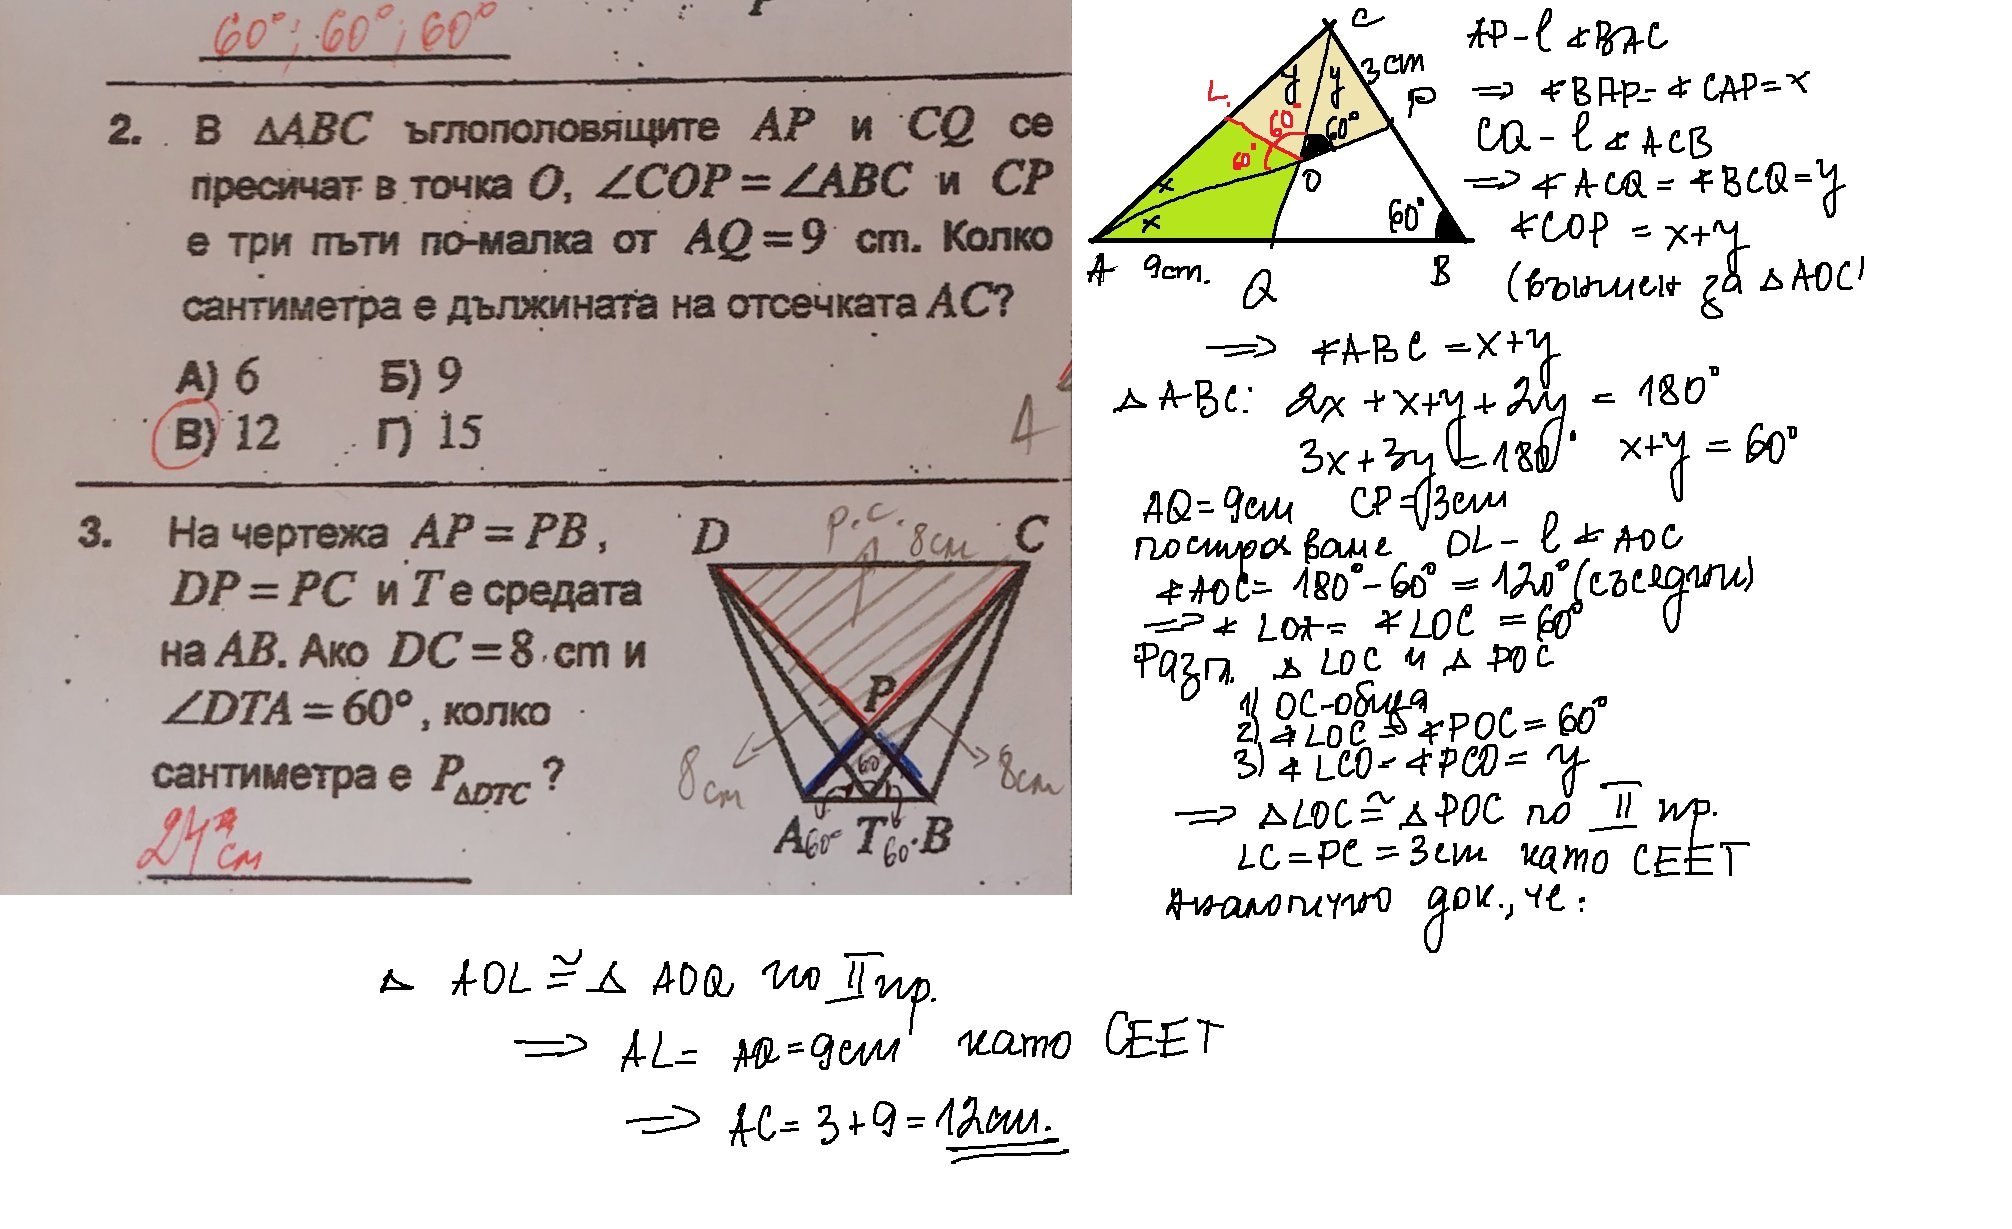 60°; 60°; 60°
2. В ΔABC ъглополовящите AP и CQ се
пресичат в точка O, ∠COP = ∠ABC и CP
е три пъти по-малка от AQ = 9 cm. Колко
сантиметра е дължината на отсечката AC?
А) 6 Б) 9
В) 12 Г) 15
4
3. На чертежа AP = PB,
DP = PC и T е средата
на AB. Ако DC = 8 cm и
∠DTA = 60°, колко
сантиметра е P△DTC?
24 cm
D р.с. 8cm C
P
8cm 60° 8cm
A 60° T 60° B
C
3cm
L y y P
60° 60°
60° O
x
x 60°
A 9cm. Q B
AP - l ∢BAC
⇒ ∢BAP = ∢CAP = x
CQ - l ∢ACB
⇒ ∢ACQ = ∢BCQ = y
∢COP = x+y
(външен за △AOC)
⇒ ∢ABC = x+y
△ABC: 2x + x+y + 2y = 180°
3x + 3y = 180° x+y = 60°
AQ = 9cm CP = 3cm
построяваме OL - l ∢AOC
∢AOC = 180° - 60° = 120° (съседни)
⇒ ∢LOA = ∢LOC = 60°
Разгл. △LOC и △POC
1) OC - обща
2) ∢LOC = ∢POC = 60°
3) ∢LCO = ∢PCO = y
⇒ △LOC ≅ △POC по II пр.
LC = PC = 3cm като СЕЕТ
Аналогично док., че:
△ AOL ≅ △ AOQ по II пр.
⇒ AL = AQ = 9cm като СЕЕТ
⇒ AC = 3 + 9 = 12cm.